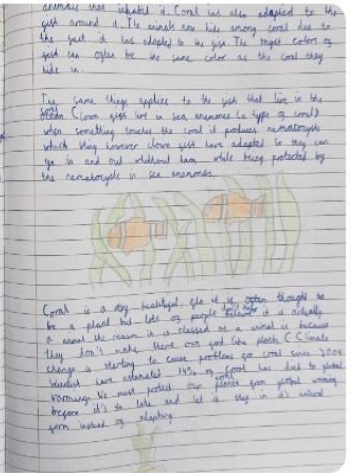 animals that inhabit it. Coral has also adapted to the
fish around it. The animals now hide among coral due to
the fact it has adapted to the fish. The bright colors of
fish can often be the same color as the coral they
hide in.
The same things applies to the fish that live in the
coral
ocean (Clown fish live in sea anenomes (a type of coral)
when something touches the coral it produces nematocysts
which sting however clown fish have adapted so they can
go in and out whithout harm while being protected by
the nematocysts in sea anenomes.
Coral is a very beautiful it is often thought to
be a plant but lots of people don't it is actually
a animal the reason it is classed as a animal is because
they don't make there own food like plants. Climate
change is starting to cause problems for coral since 2009
scientist have estamated 14% of coral has died to global
warming. We must protect our from global warming
before it's to late and let it stay in it's natural
form instead of adapting.